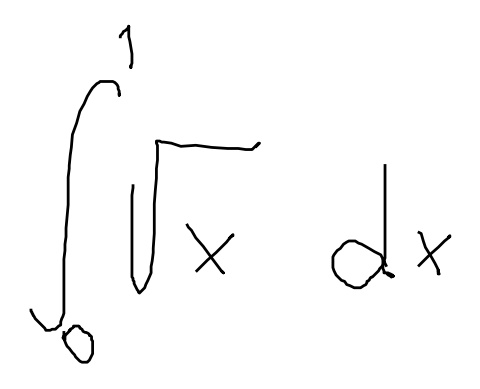 ∫₀¹ √x dx